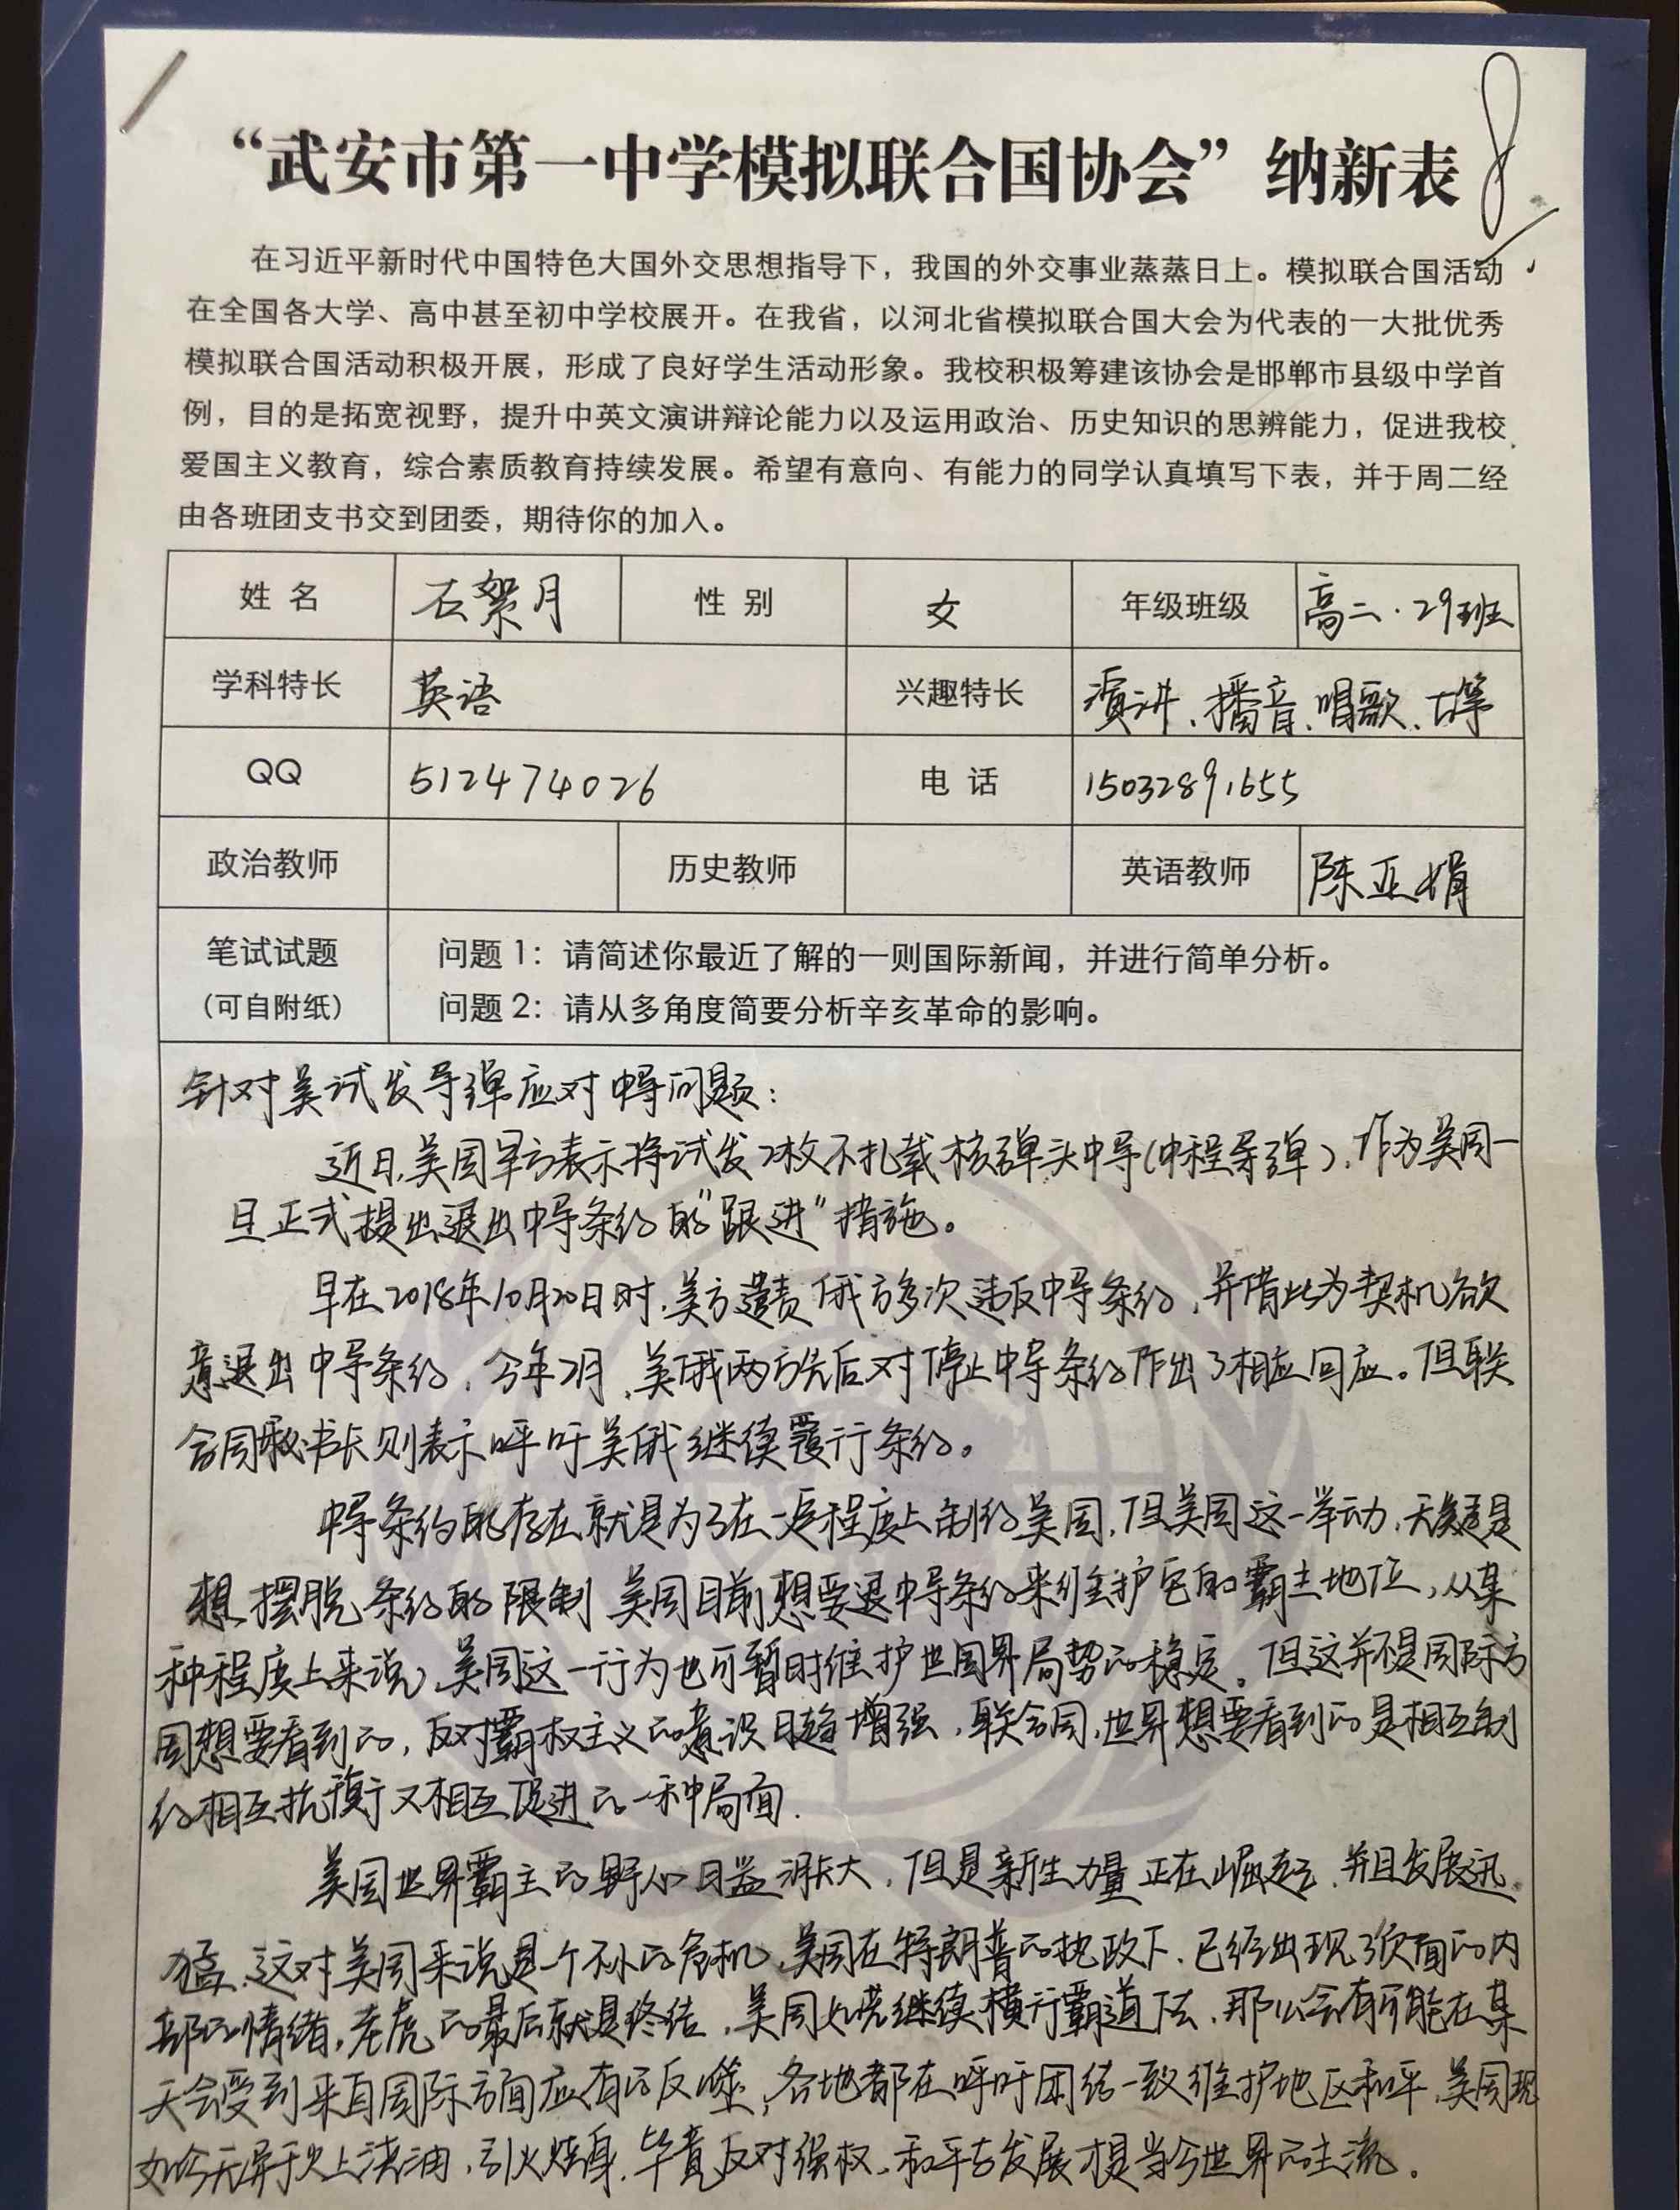 “武安市第一中学模拟联合国协会”纳新表
在习近平新时代中国特色大国外交思想指导下，我国的外交事业蒸蒸日上。模拟联合国活动
在全国各大学、高中甚至初中学校展开。在我省，以河北省模拟联合国大会为代表的一大批优秀
模拟联合国活动积极开展，形成了良好学生活动形象。我校积极筹建该协会是邯郸市县级中学首
例，目的是拓宽视野，提升中英文演讲辩论能力以及运用政治、历史知识的思辨能力，促进我校
爱国主义教育，综合素质教育持续发展。希望有意向、有能力的同学认真填写下表，并于周二经
由各班团支书交到团委，期待你的加入。
姓 名 石絮月 性 别 女 年级班级 高二·29班
学科特长 英语 兴趣特长 演讲、播音、唱歌、古筝
QQ 512474026 电 话 15032891655
政治教师 历史教师 英语教师 陈亚娟
笔试试题 问题 1：请简述你最近了解的一则国际新闻，并进行简单分析。
（可自附纸） 问题 2：请从多角度简要分析辛亥革命的影响。
针对美试发导弹应对中导问题：
近日，美国军方表示将试发2枚不扎载核弹头中导（中程导弹），作为美国一
旦正式提出退出中导条约的“跟进”措施。
早在2018年10月20日时，美方谴责俄方多次违反中导条约，并借此为契机欲
意退出中导条约，今年2月，美俄两方先后对停止中导条约作出了相应回应。但联
合国秘书长则表示呼吁美俄继续覆行条约。
中导条约的存在就是为了在一定程度上制约美国，但美国这一举动，无疑是
想摆脱条约的限制 美国目前想要退中导条约来维护它的霸主地位，从某
种程度上来说，美国这一行为也可暂时维护世国界局势的稳定。但这并不是国际方
国想要看到的，反对霸权主义的意识日趋增强，联合国，世界想要看到的是相互制
约相互抗衡又相互促进的一种局面.
美国世界霸主的野心日益渐大，但是新生力量正在崛起，并且发展迅
猛，这对美国来说是一个不小的危机，美国在特朗普的执政下，已经出现了负面的内
部的情绪，老虎的最后就是终结，美国如果继续横行霸道下去，那么会有可能在某
天会受到来自国际方面应有的反噬，各地都在呼吁团结一致维护地区和平，美国现
如今无异于火上浇油，引火烧身，毕竟反对强权、和平与发展才是当今世界的主流。